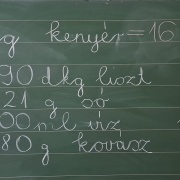 g kenyér=16
90 dkg liszt
21 g só
00 ml víz
80 g kovász